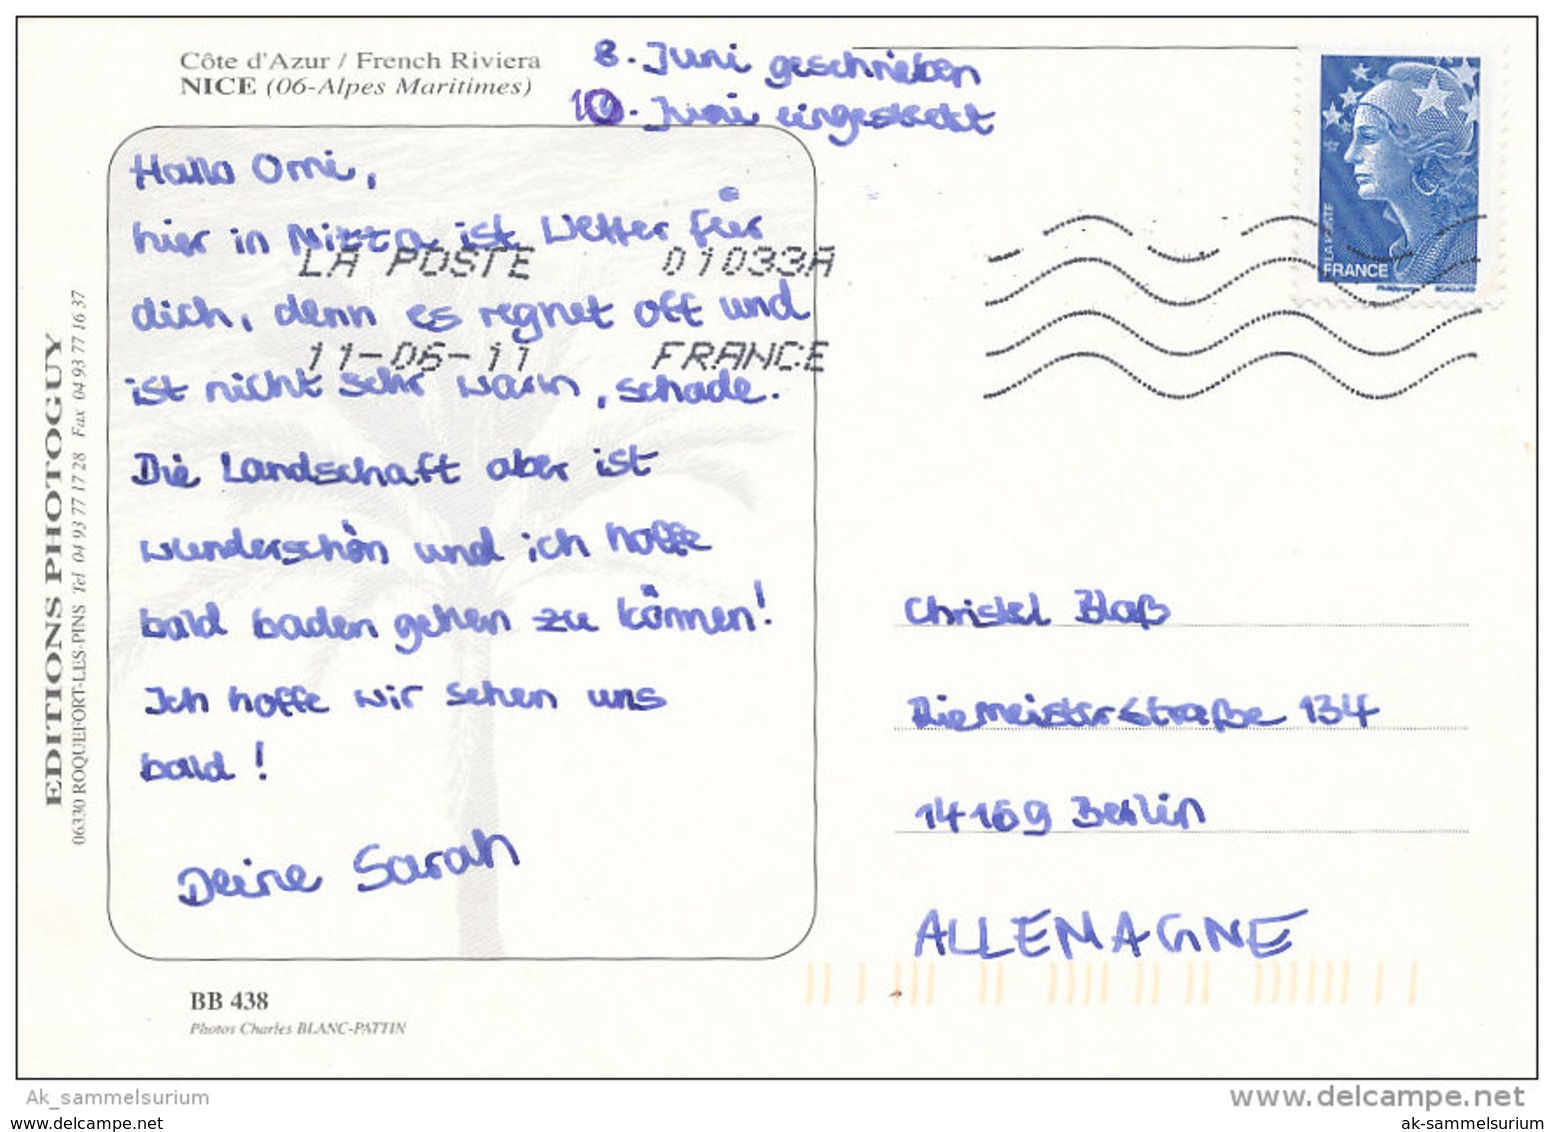 Côte d'Azur / French Riviera
NICE (06-Alpes Maritimes)
8. Juni geschrieben
10. Juni eingesteckt
Hallo Omi,
hier in Nizza ist Wetter für
LA POSTE 01033A
dich, denn es regnet oft und
11-06-11 FRANCE
ist nicht sehr warm, schade.
Die Landschaft aber ist
wunderschön und ich hoffe
bald baden gehen zu können!
Ich hoffe wir sehen uns
bald!
Deine Sarah
LA POSTE
FRANCE
Christel Blaß
Riemeisterstraße 134
14169 Berlin
ALLEMAGNE
EDITIONS PHOTOGUY
06330 ROQUEFORT-LES-PINS Tel 04 93 77 17 28 Fax 04 93 77 16 37
BB 438
Photos Charles BLANC-PATTIN
Ak_sammelsurium
www.delcampe.net
www.delcampe.net
ak-sammelsurium